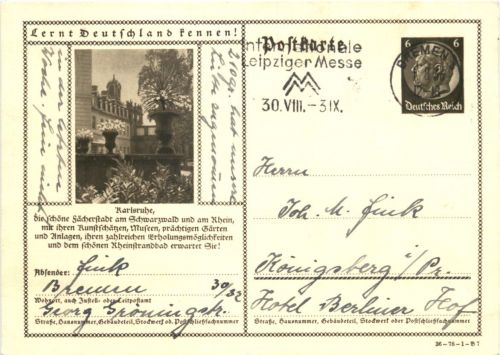 Lernt Deutschland kennen!
Postkarte
Internationale
Leipziger Messe
30.VIII.–3.IX.
BREMEN
6 6
Deutsches Reich
in der letzten
Woche.
210gr. hat unsere
Karlsruhe,
die schöne Fächerstadt am Schwarzwald und am Rhein,
mit ihren Kunstschätzen, Museen, prächtigen Gärten
und Anlagen, ihren zahlreichen Erholungsmöglichkeiten
und dem schönen Rheinstrandbad erwartet Sie!
Absender: Fink
Bremen
Wohnort, auch Zustell- oder Leitpostamt
Georg Gröningstr. 30/32
Straße, Hausnummer, Gebäudeteil, Stockwerk od. Postschließfachnummer
Herrn
Joh. M. Fink
Königsberg i/Pr.
Hotel Berliner Hof
Straße, Hausnummer, Gebäudeteil, Stockwerk oder Postschließfachnummer
36-76-1-B7